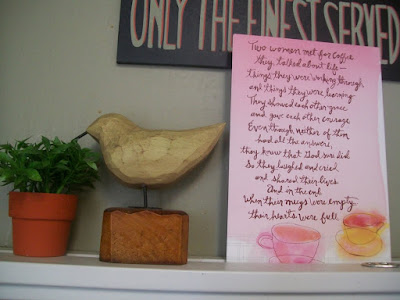 ONLY THE FINEST SERVED
Two women met for coffee
They talked about life—
things they were working through
and things they were learning
They showed each other grace
and gave each other courage
Even though neither of them
had all the answers,
they knew that God sure did
So they laughed and cried
and shared their lives
And in the end
when their mugs were empty
their hearts were full